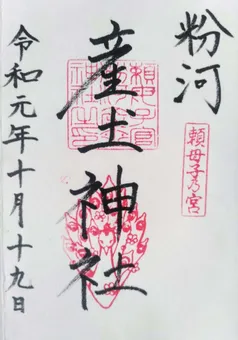 粉河
頼母子乃宮
産土神社
令和元年十月十九日